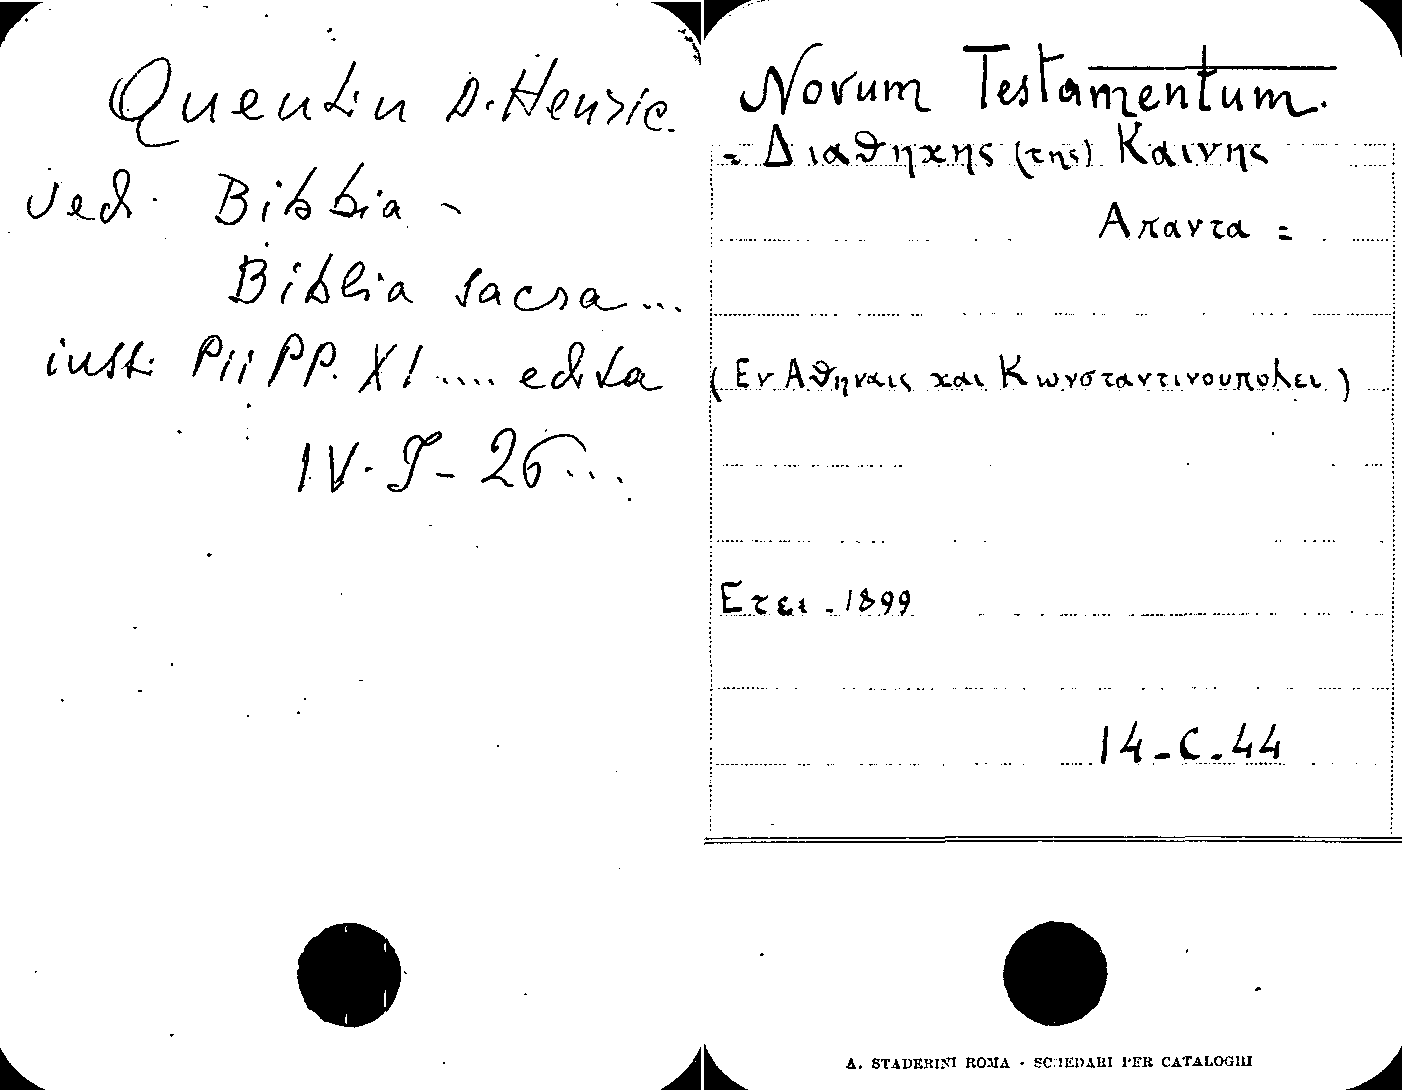 Quentin D. Henric.
ved. Bibbia -
Biblia sacra ...
iuss. Pii PP. XI .... edita
IV. J - 26 ...
Novum Testamentum.
= Διαθηκης (της) Καινης
Απαντα =
(Εν Αθηναις και Κωνσταντινουπολει)
Ετει - 1899
14 - C - 44
A. STADERINI ROMA - SCHEDARI PER CATALOGHI